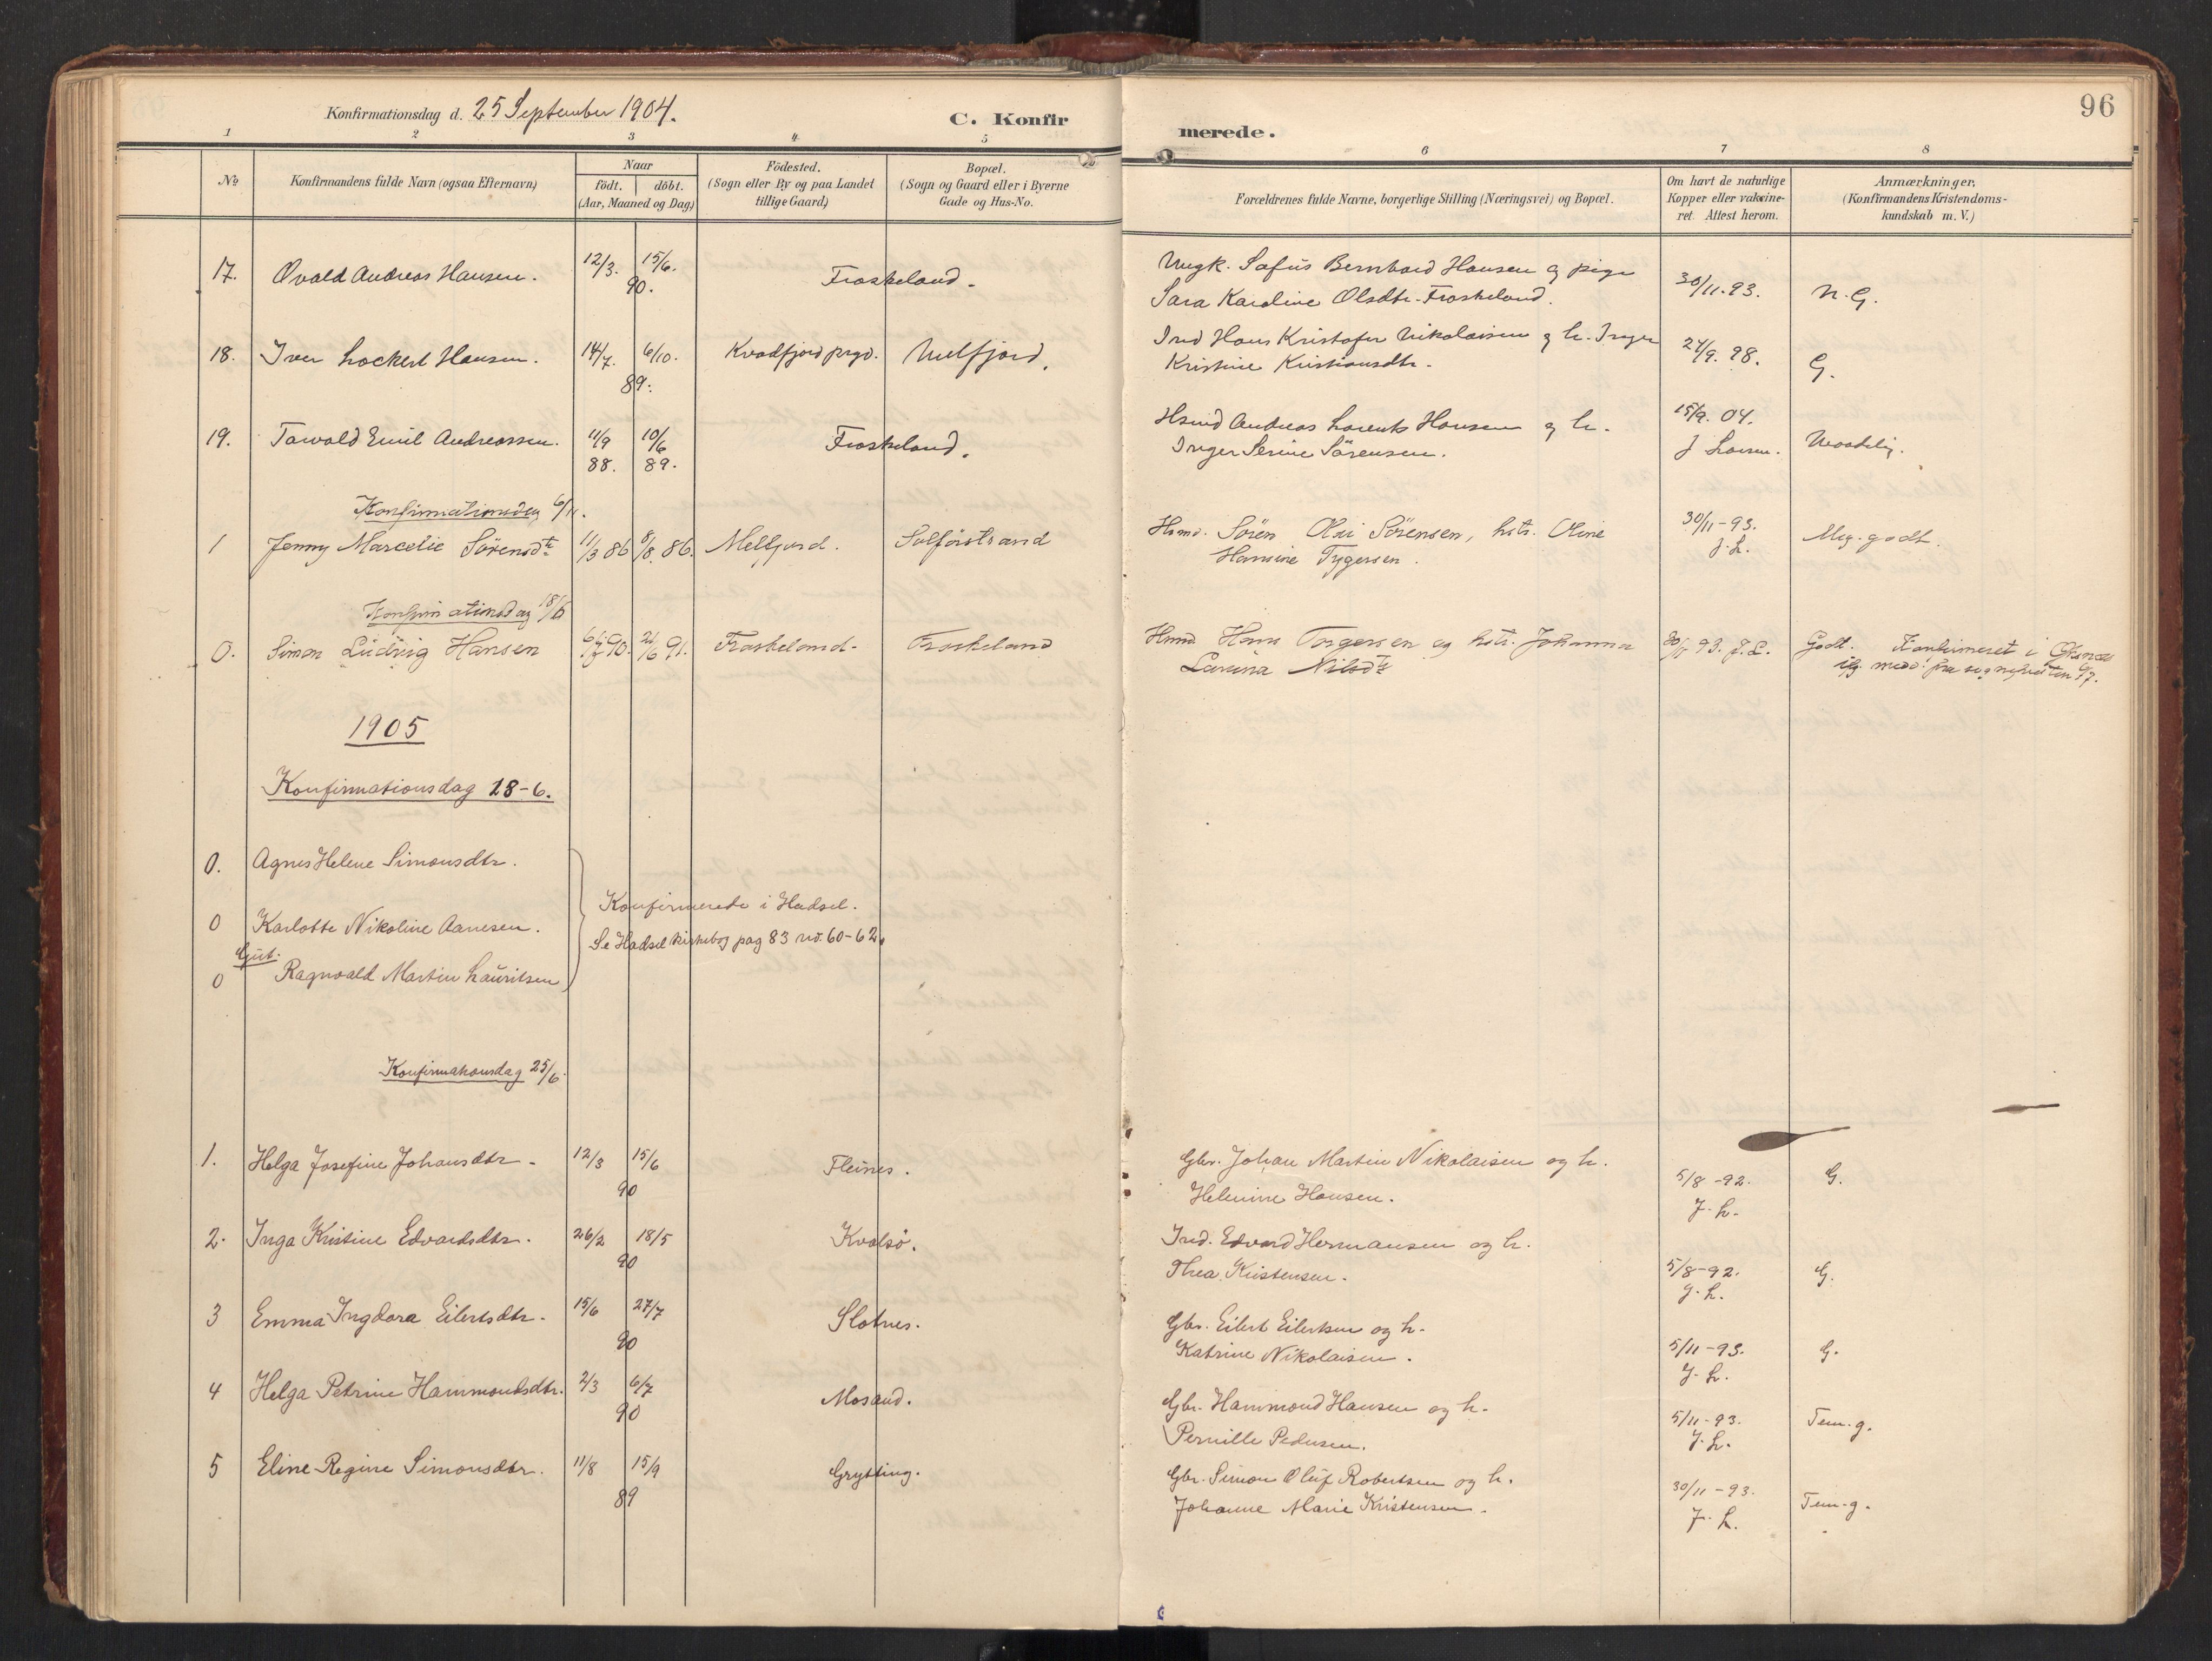 Konfirmationsdag d. 25 September 1904.
C. Konfir
merede.
96
1 2 3 4 5 6 7 8
No
Konfirmandens fulde Navn (ogsaa Efternavn)
Naar
födt. döbt.
(Aar, Maaned og Dag)
Födested.
(Sogn eller By og paa Landet
tillige Gaard)
Bopæl.
(Sogn og Gaard eller i Byerne
Gade og Hus-No.
Forældrenes fulde Navne, borgerlige Stilling (Næringsvei) og Bopæl.
Om havt de naturlige
Kopper eller vakcine-
ret. Attest herom.
Anmærkninger.
(Konfirmandens Kristendoms-
kundskab m. V.)
17. Ovald Andreas Hansen. 12/3. 15/6. 90. Froskeland. Ungk. Safus Bernhard Hansen og pige
Sara Karoline Olsdtr. Froskeland. 30/11. 93. N. G.
18. Iver Lockert Hansen. 14/7. 6/10. 89. Kvædfjord prgd. Ulvefjord. Ind Hans Kristofer Nikolaisen og h. Inger
Kristine Kristiansdtr. 98. G.
19. Torvald Emil Andreassen. 11/9 88. 10/6 89. Froskeland. Hsmd Andreas Lorents Hansen og h.
Inger Serine Sörensen. 15/9. 04.
J Larsen.
Konfirmationsdag 6/11.
1 Jenny Marcelie Sörensdtr 11/3 86 8/8. 86. Melfjord. Hsmd. Sören Olai Sörensen, hstr. Oline
Hansine 30/11-93.
J. L. Meg. godt.
Konfirmationsdag 18/6
0. Simon Ludvig Hansen 90. 91. Froskeland. Froskeland Hsmd Hans Torgersen og hstr. Johanna
Lavina Nilsdtr 93. J. L. Godt. Konfirmeret i Öksnes
1905
Konfirmationsdag 18-6.
0. Agnes Helene Simonsdtr.
0 Karlotte Nikoline Aanesen.
Konfirmerede i Hadsel.
Se Hadsel kirkebog pag 83 no. 60-62.
Gut.
0 Ragnvald Martin Lauritsen
Konfirmationsdag 25/6
1. Helga Josefine Johansdtr. 12/3 15/6 90 Fleines. Gbr. Johan Martin Nikolaisen og h.
Helenine Hansen. 5/8-92.
J. L. G.
2. Inga Kristine Edvardsdtr. 26/2 18/5 90 Kvalsö. Ind. Edvard Hermansen og h.
Thea Kristensen. 5/8-92.
J. L. G.
3 Emma Ingdora Eilertsdtr. 15/6 27/7 90 Slotnes. Gbr. Eilert Eilertsen og h.
Katrine Nikolaisen. 5/11-93.
J. L. G.
4 Helga Petrine Hammondsdtr. 2/3 6/7 90 Mosand. Gbr. Hammond Hansen og h.
Pernille Pedersen. 5/11-93.
J. L. Tem. g.
5 Eline Regine Simonsdtr. 11/8 15/9 89 Grytting. Gbr. Simon Oluf Robertsen og h.
Johanne Marie Kristensen. 30/11-93.
J. L. Tem. g.